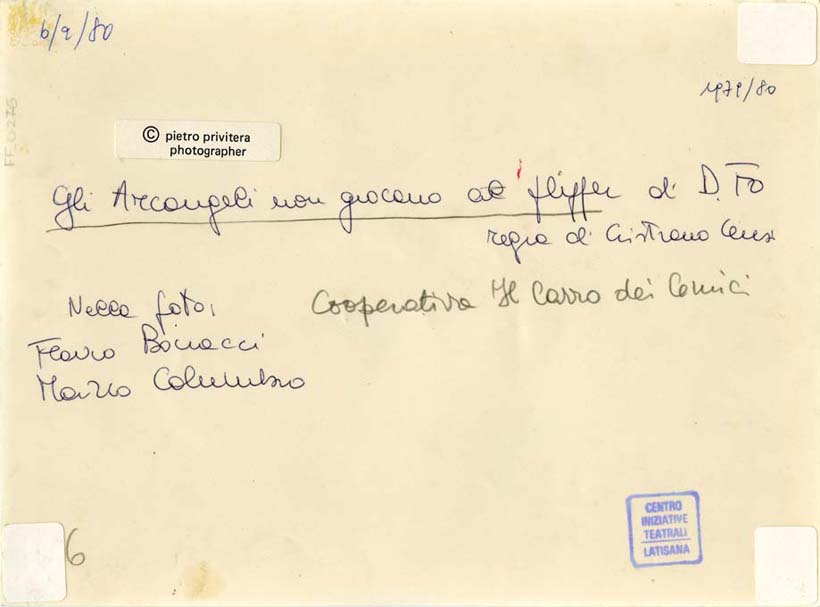 6/9/80
1979/80
FF_0276
© pietro privitera
photographer
Gli Arcangeli non giocano al flipper di D. Fo
regia di Cristiano Censi
Nella foto:
Cooperativa Il Carro dei Comici
Flavio Bonacci
Marco Columbro
6
CENTRO
INIZIATIVE
TEATRALI
LATISANA